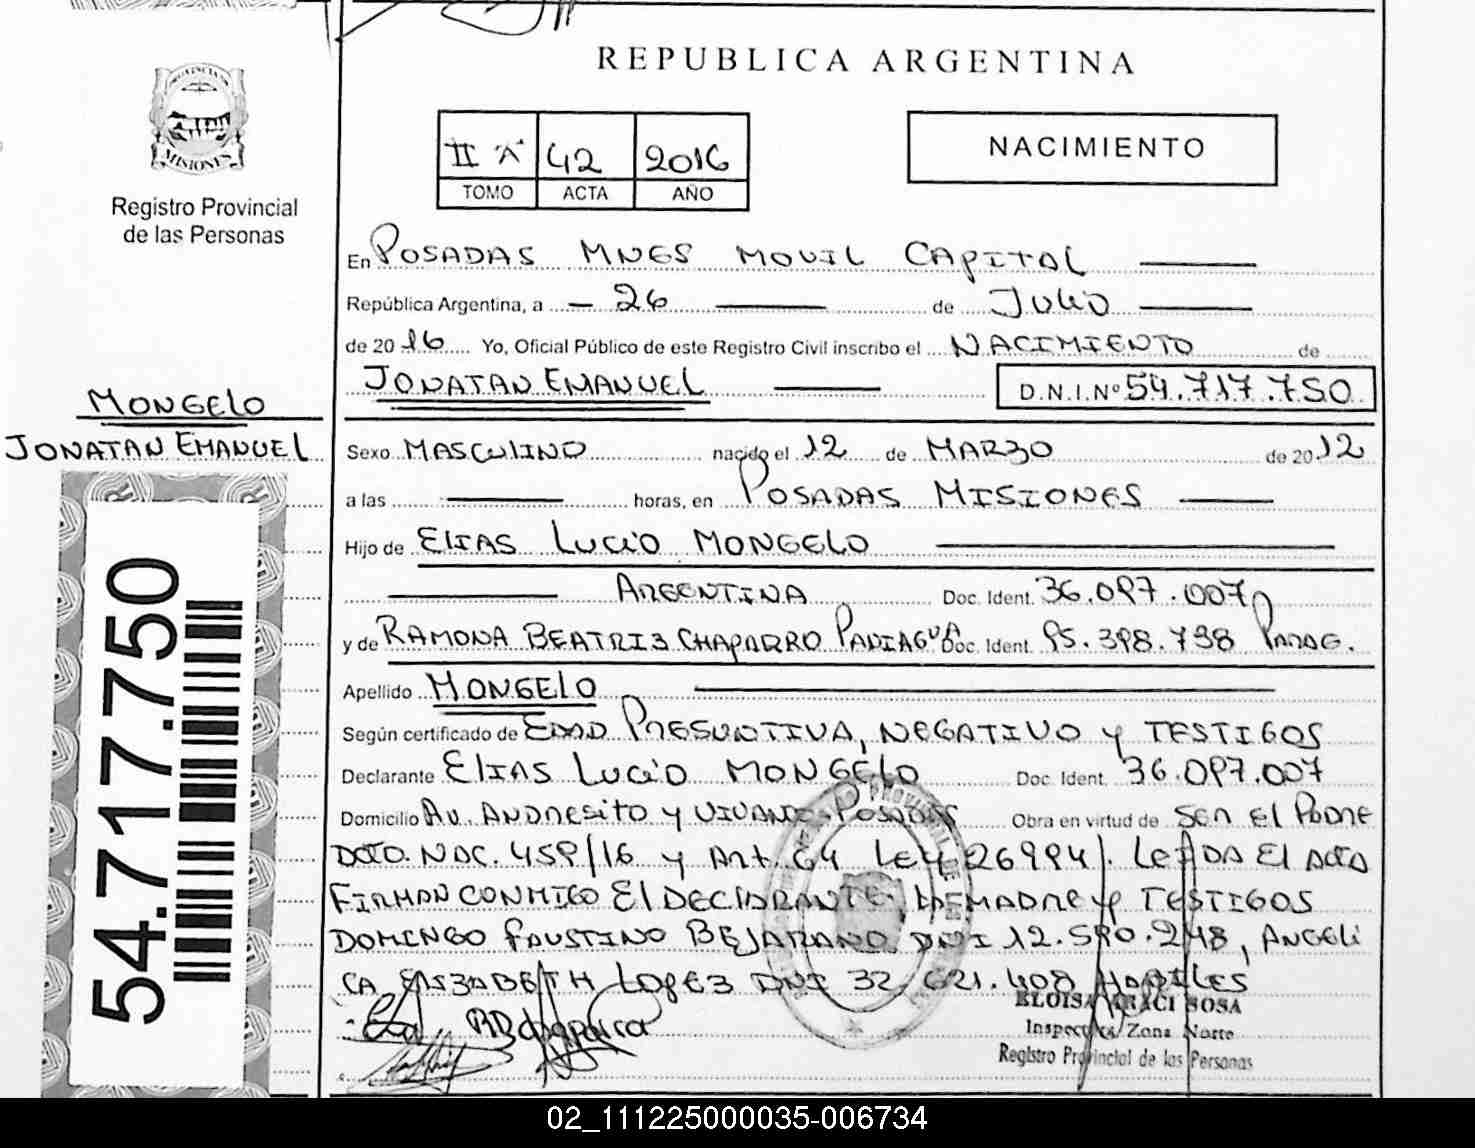 REPUBLICA ARGENTINA
II "A" 42 2016
TOMO ACTA AÑO
NACIMIENTO
PROVINCIA DE
MISIONES
Registro Provincial
de las Personas
En POSADAS MNES MOVIL CAPITAL
República Argentina, a 26 de JULIO
de 2016 Yo, Oficial Público de este Registro Civil inscribo el NACIMIENTO de
JONATAN EMANUEL D.N.I.Nº 54.717.750
MONGELO
JONATAN EMANUEL
54.717.750
Sexo MASCULINO nacido el 12 de MARZO de 2012
a las horas, en POSADAS MISIONES
Hijo de ELIAS LUCIO MONGELO
ARGENTINA Doc. Ident. 36.097.007
y de RAMONA BEATRIZ CHAPARRO PANIAGUA Doc. Ident. 95.398.738 PARAG.
Apellido MONGELO
Según certificado de EDAD PRESUNTIVA, NEGATIVO y TESTIGOS
Declarante ELIAS LUCIO MONGELO Doc. Ident. 36.097.007
Domicilio AV. ANDRESITO y VIVANCO POSADAS Obra en virtud de SER EL PADRE
DCTO. NAC. 459/16 y Art. 64 Ley 26994). LEIDA EL ACTA
FIRMAN CONMIGO El DECLARANTE, LA MADRE y TESTIGOS
DOMINGO FAUSTINO BEJARANO DNI 12.590.248, ANGELI
CA ELIZABETH LOPEZ DNI 32.621.408 HABILES
ELOISA ARACI SOSA
Inspectora Zona Norte
Registro Provincial de las Personas
02_111225000035-006734